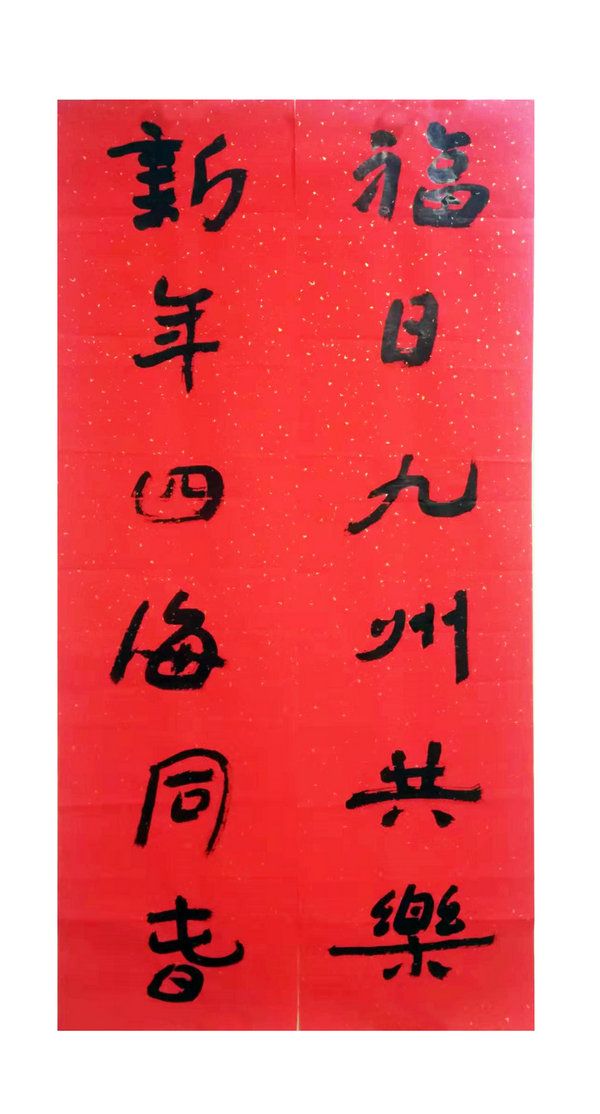 福日九州共樂
新年四海同旾